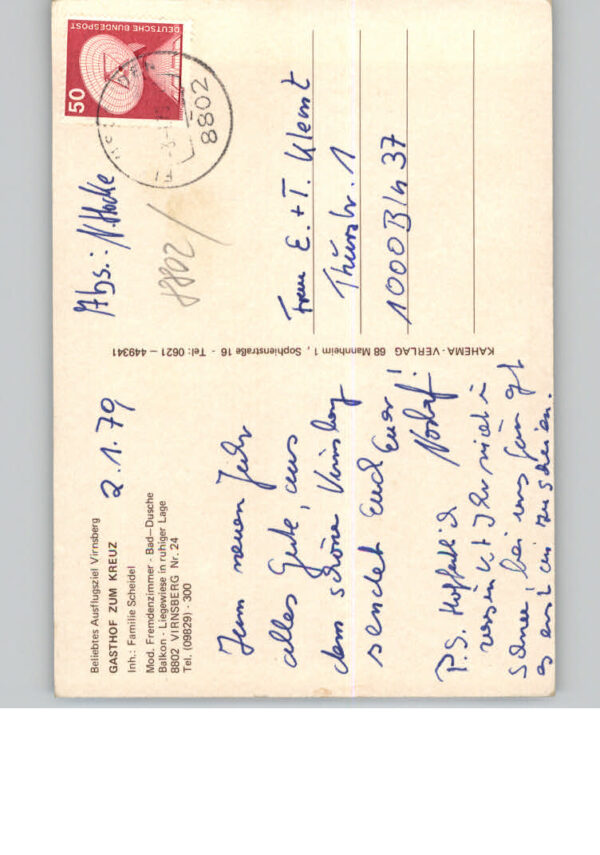 Beliebtes Ausflugsziel Virnsberg
GASTHOF ZUM KREUZ
Inh.: Familie Scheidel
Mod. Fremdenzimmer · Bad—Dusche
Balkon · Liegewiese in ruhiger Lage
8802 VIRNSBERG Nr. 24
Tel. (09829) · 300
2.1.79
Zum neuen Jahr
alles Gute, aus
dem schöne Virnsberg
sendet Euch Euer
P.S. Hoffentlich
versinkt Ihr nicht im
Schnee, bei uns fängt
es erst an zu schneien.
KAHEMA-VERLAG 68 Mannheim 1, Sophienstraße 16 · Tel: 0621 — 449341
Abs.:
8802/
DEUTSCHE BUNDESPOST
50
8802
E. + T. Klemt
Thürstr. 1
1000 Bln 37